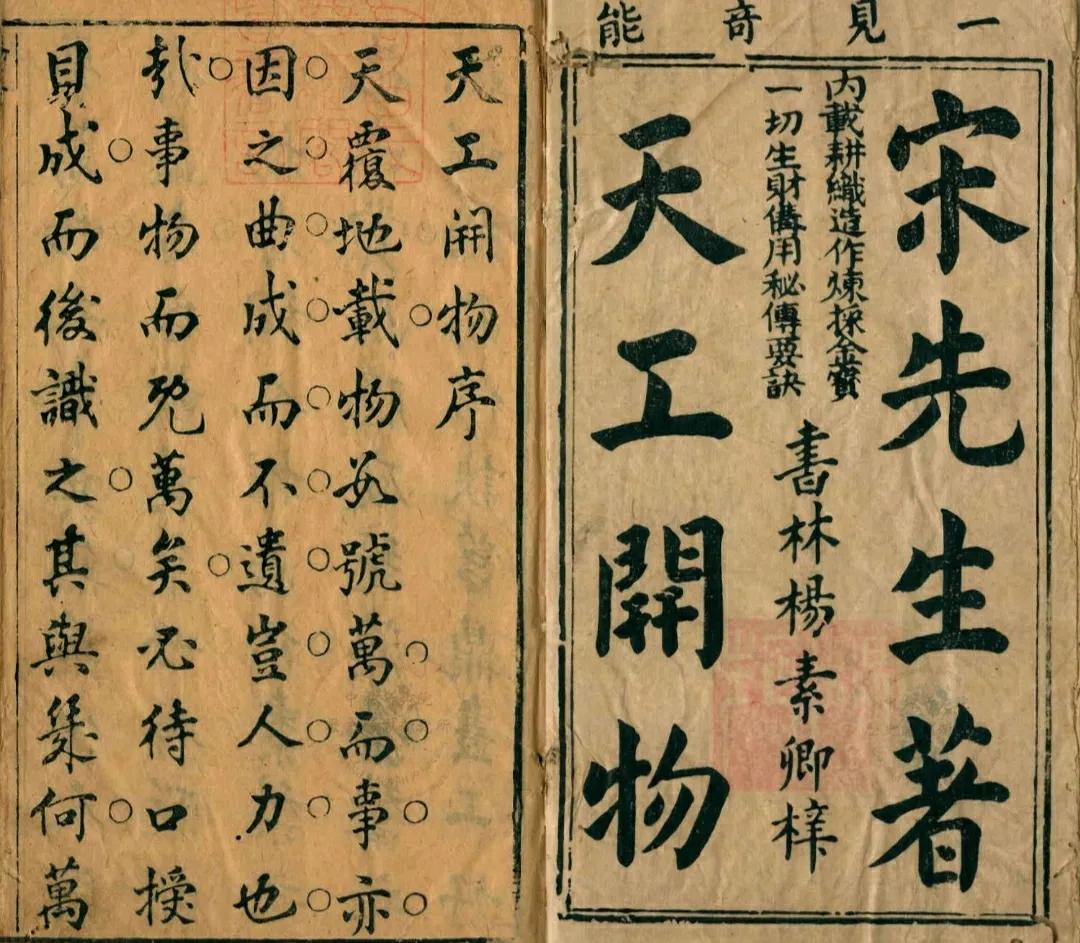 一見竒能
宋先生著
内載耕織造作煉採金寶
一切生財備用秘傳要訣
書林楊素卿梓
天工開物
天工開物序
天覆地載物数號萬而事亦
因之曲成而不遺豈人力也
哉事物而既萬矣必待口授
目成而後識之其與幾何萬